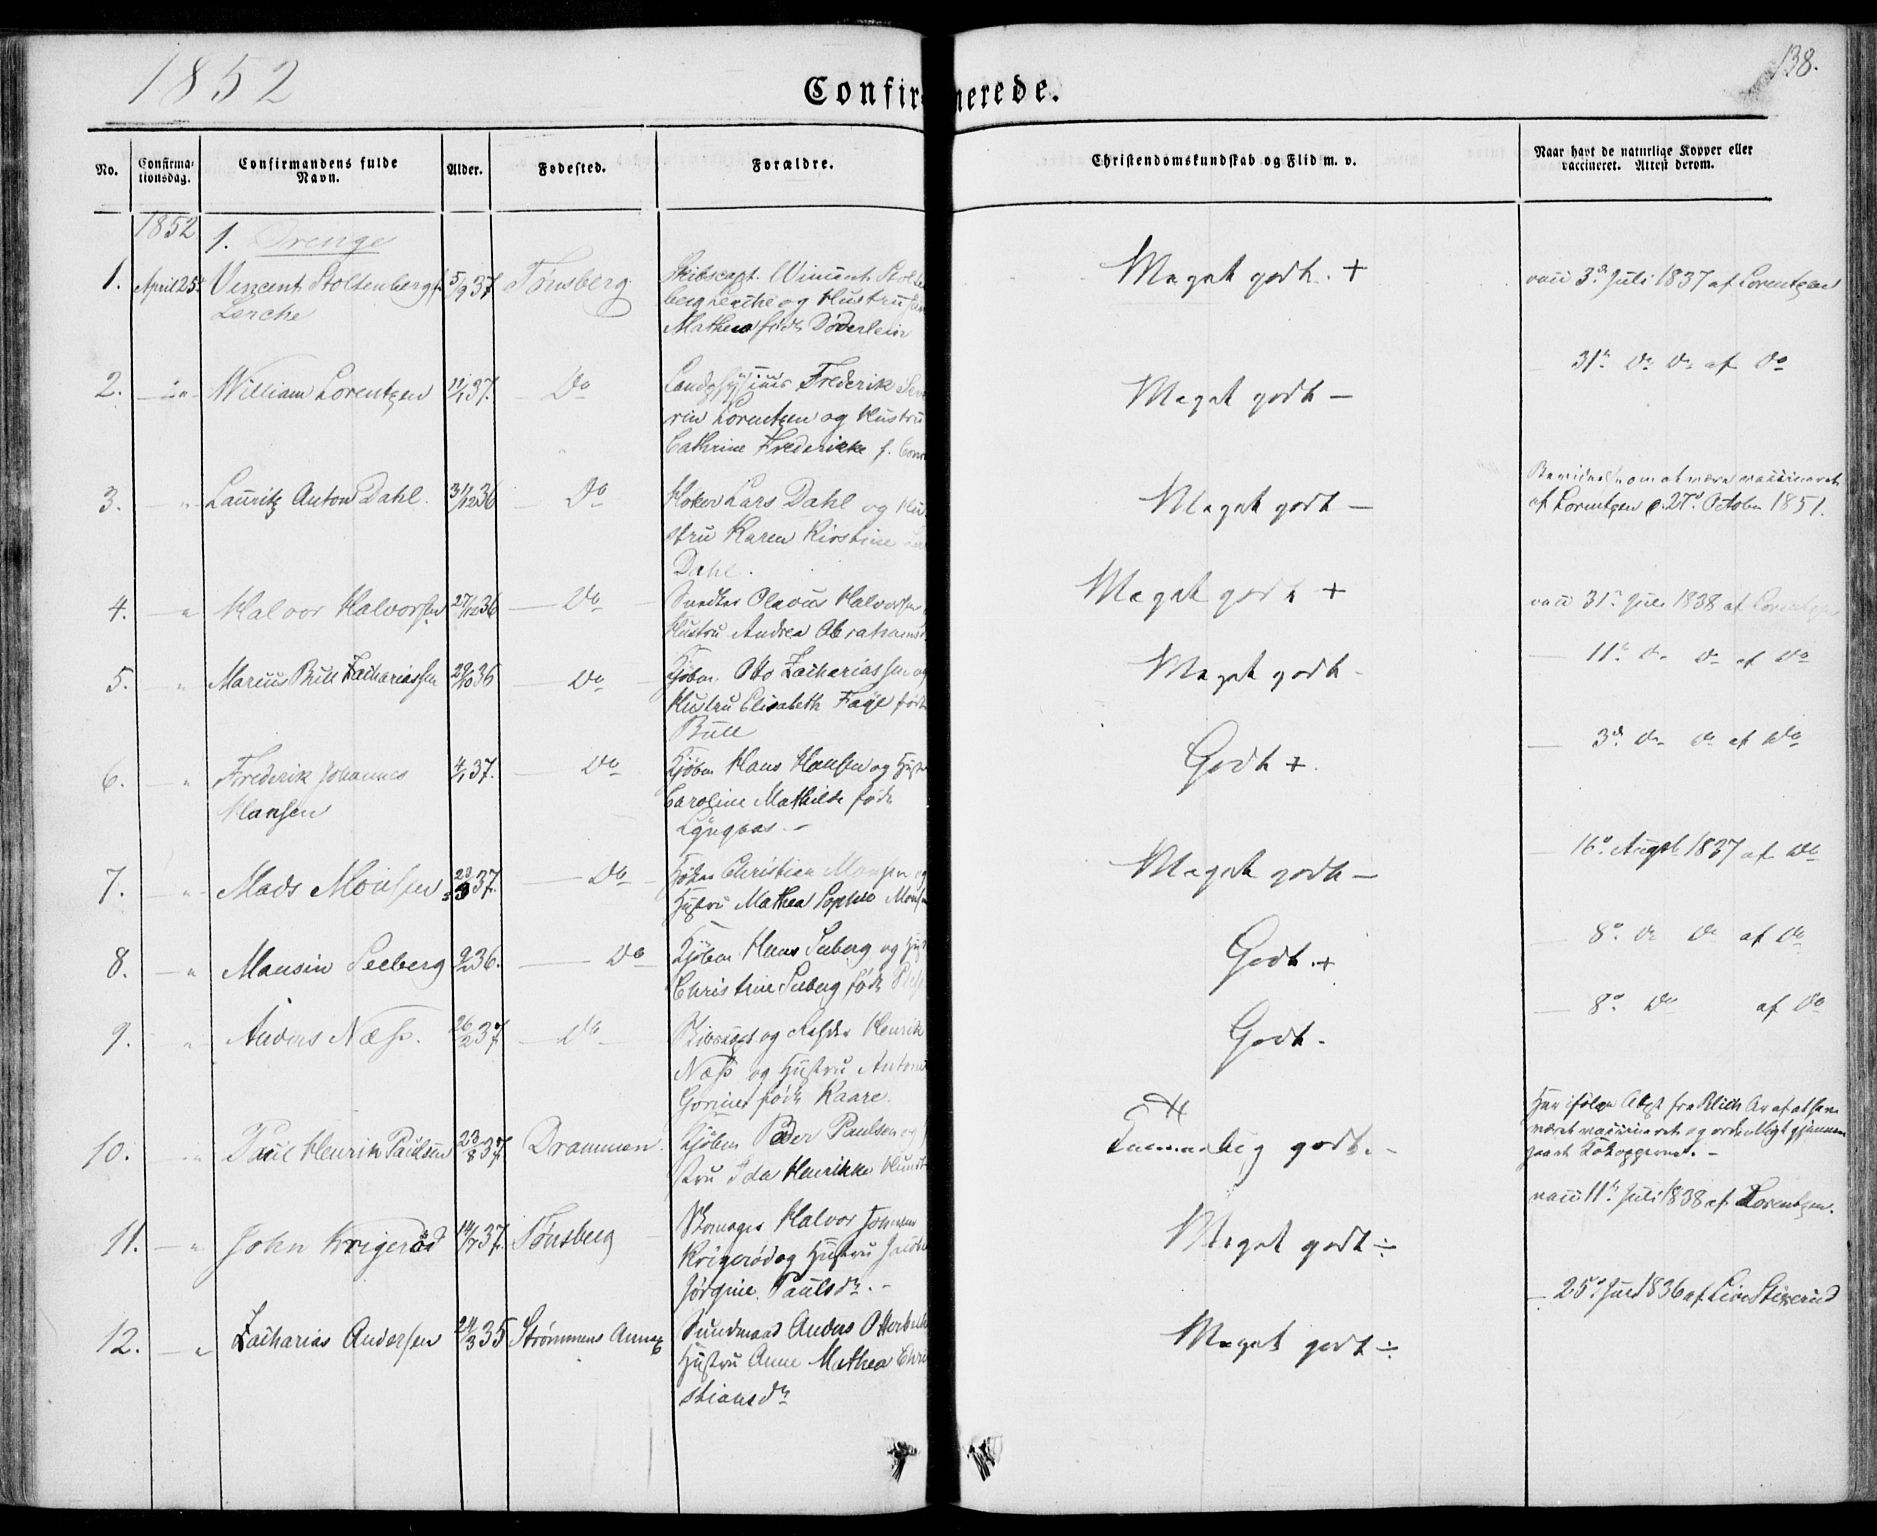 1852
Confirmerede.
138.
No.
Confirma-
tionsdag.
Confirmandens fulde
Navn.
Alder.
Fødested.
Forældre.
Christendomskundskab og Flid m. v.
Naar havt de naturlige Kopper eller
vaccineret. Attest derom.
1852
1. Drenge
1. April 25 Vincent Stoltenberg 5/9 37 Tønsberg Skibscapt. Vincent Stolten
Lerche berg Lerche og Hustru
Mathea født Döderlein
Meget godt. + vacc 3d Juli 1837 af Lorentzen
2. William Lorentzen 11/1 37. Do Landphysicus Frederik Seve
rin Lorentzen og Hustru
Cathrine Fredericke f.
Meget godt — 31te Do Do af Do
3. " Lauritz Anton Dahl. 31/12 36 Do Høker Lars Dahl og Hu
stru Karen Kirstine
Dahl.
Meget godt — at være vaccineret
af Lorentzen 27d October 1851.
4. " Halvor Halvorsen 27/12 36 Do Olavus Halvorsen
Hustru Andrea Abrahams
Meget godt + vacc 31te Juli 1838 af Lorentzen
5. " Marius Bull Zachariassen 29/10 36 Do Kjøbm. Otto Zachariassen og
Hustru Elisabeth Faye født
Bull
Meget godt — 11te Do Do af Do
6. " Frederik Johannes 4/1 37. Do Kjøbm Hans Hansen og Hustr
Hansen Caroline Mathilde født
Lyngaas. —
Godt +. — 3d Do Do af Do
7. " Mads Monsen 37. Do Christian Monsen og
Hustru Mathea Sophie Mons
Meget godt — 16d August 1837 af Do
8. " Mansin Seeberg 9/2 36. Do Kjøbm. Hans Seeberg og Hust
Christine Seeberg født
Godt. + — 8d Do Do af Do
9. " Anders Næss. 26/2 37 Do Skibscapt og Reder Henrik
Næss og Hustru
født Kaare.
Godt. — 8d Do af Do
10. " Paul Henrik Paulsen 23/8 37 Drammen. Kjøbm Peder Paulsen og
stru Ida Henrikke
Temmelig godt. — Har ifølge Attest fra Blich
været vaccineret og ordentligt gjennem
gaaet Kokopperne. —
11. " John Krigerød 14/7 37. Tønsberg Skomager Halvor Johnsen
Krigerød og Hustru
Jørgine Paulsdr. —
Meget godt ÷ vacc 11te Juli 1838 af Lorentzen.
12. " Zacharias Andersen 24/3 35 Strømmens Annex Sundmand Anders Otterbech
Hustru Anne Mathea Chri
stiansdr
Meget godt ÷ — 25d Juni 1836 af